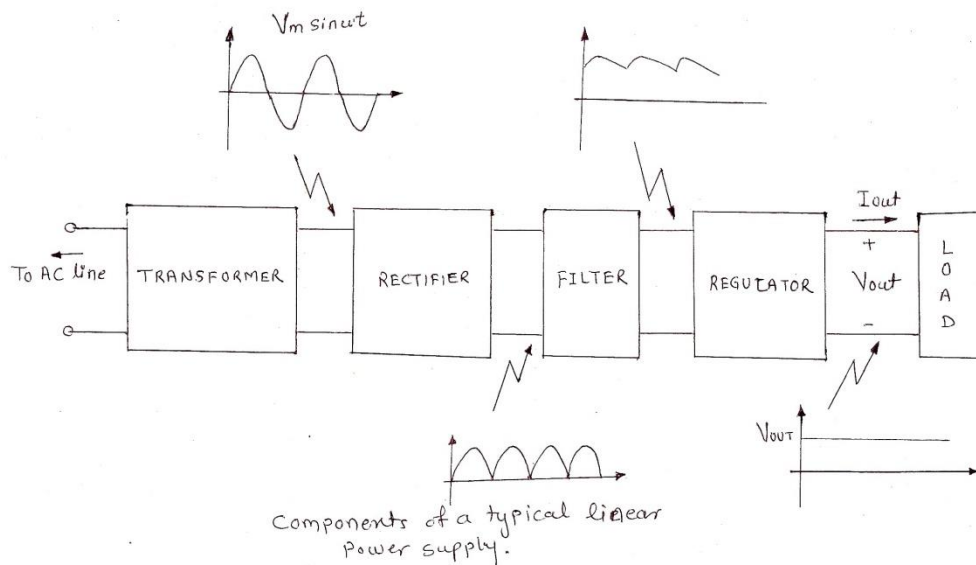 Vm sinωt
To AC line
TRANSFORMER
RECTIFIER
FILTER
REGULATOR
Iout
+
Vout
-
LOAD
VOUT
Components of a typical linear
Power supply.